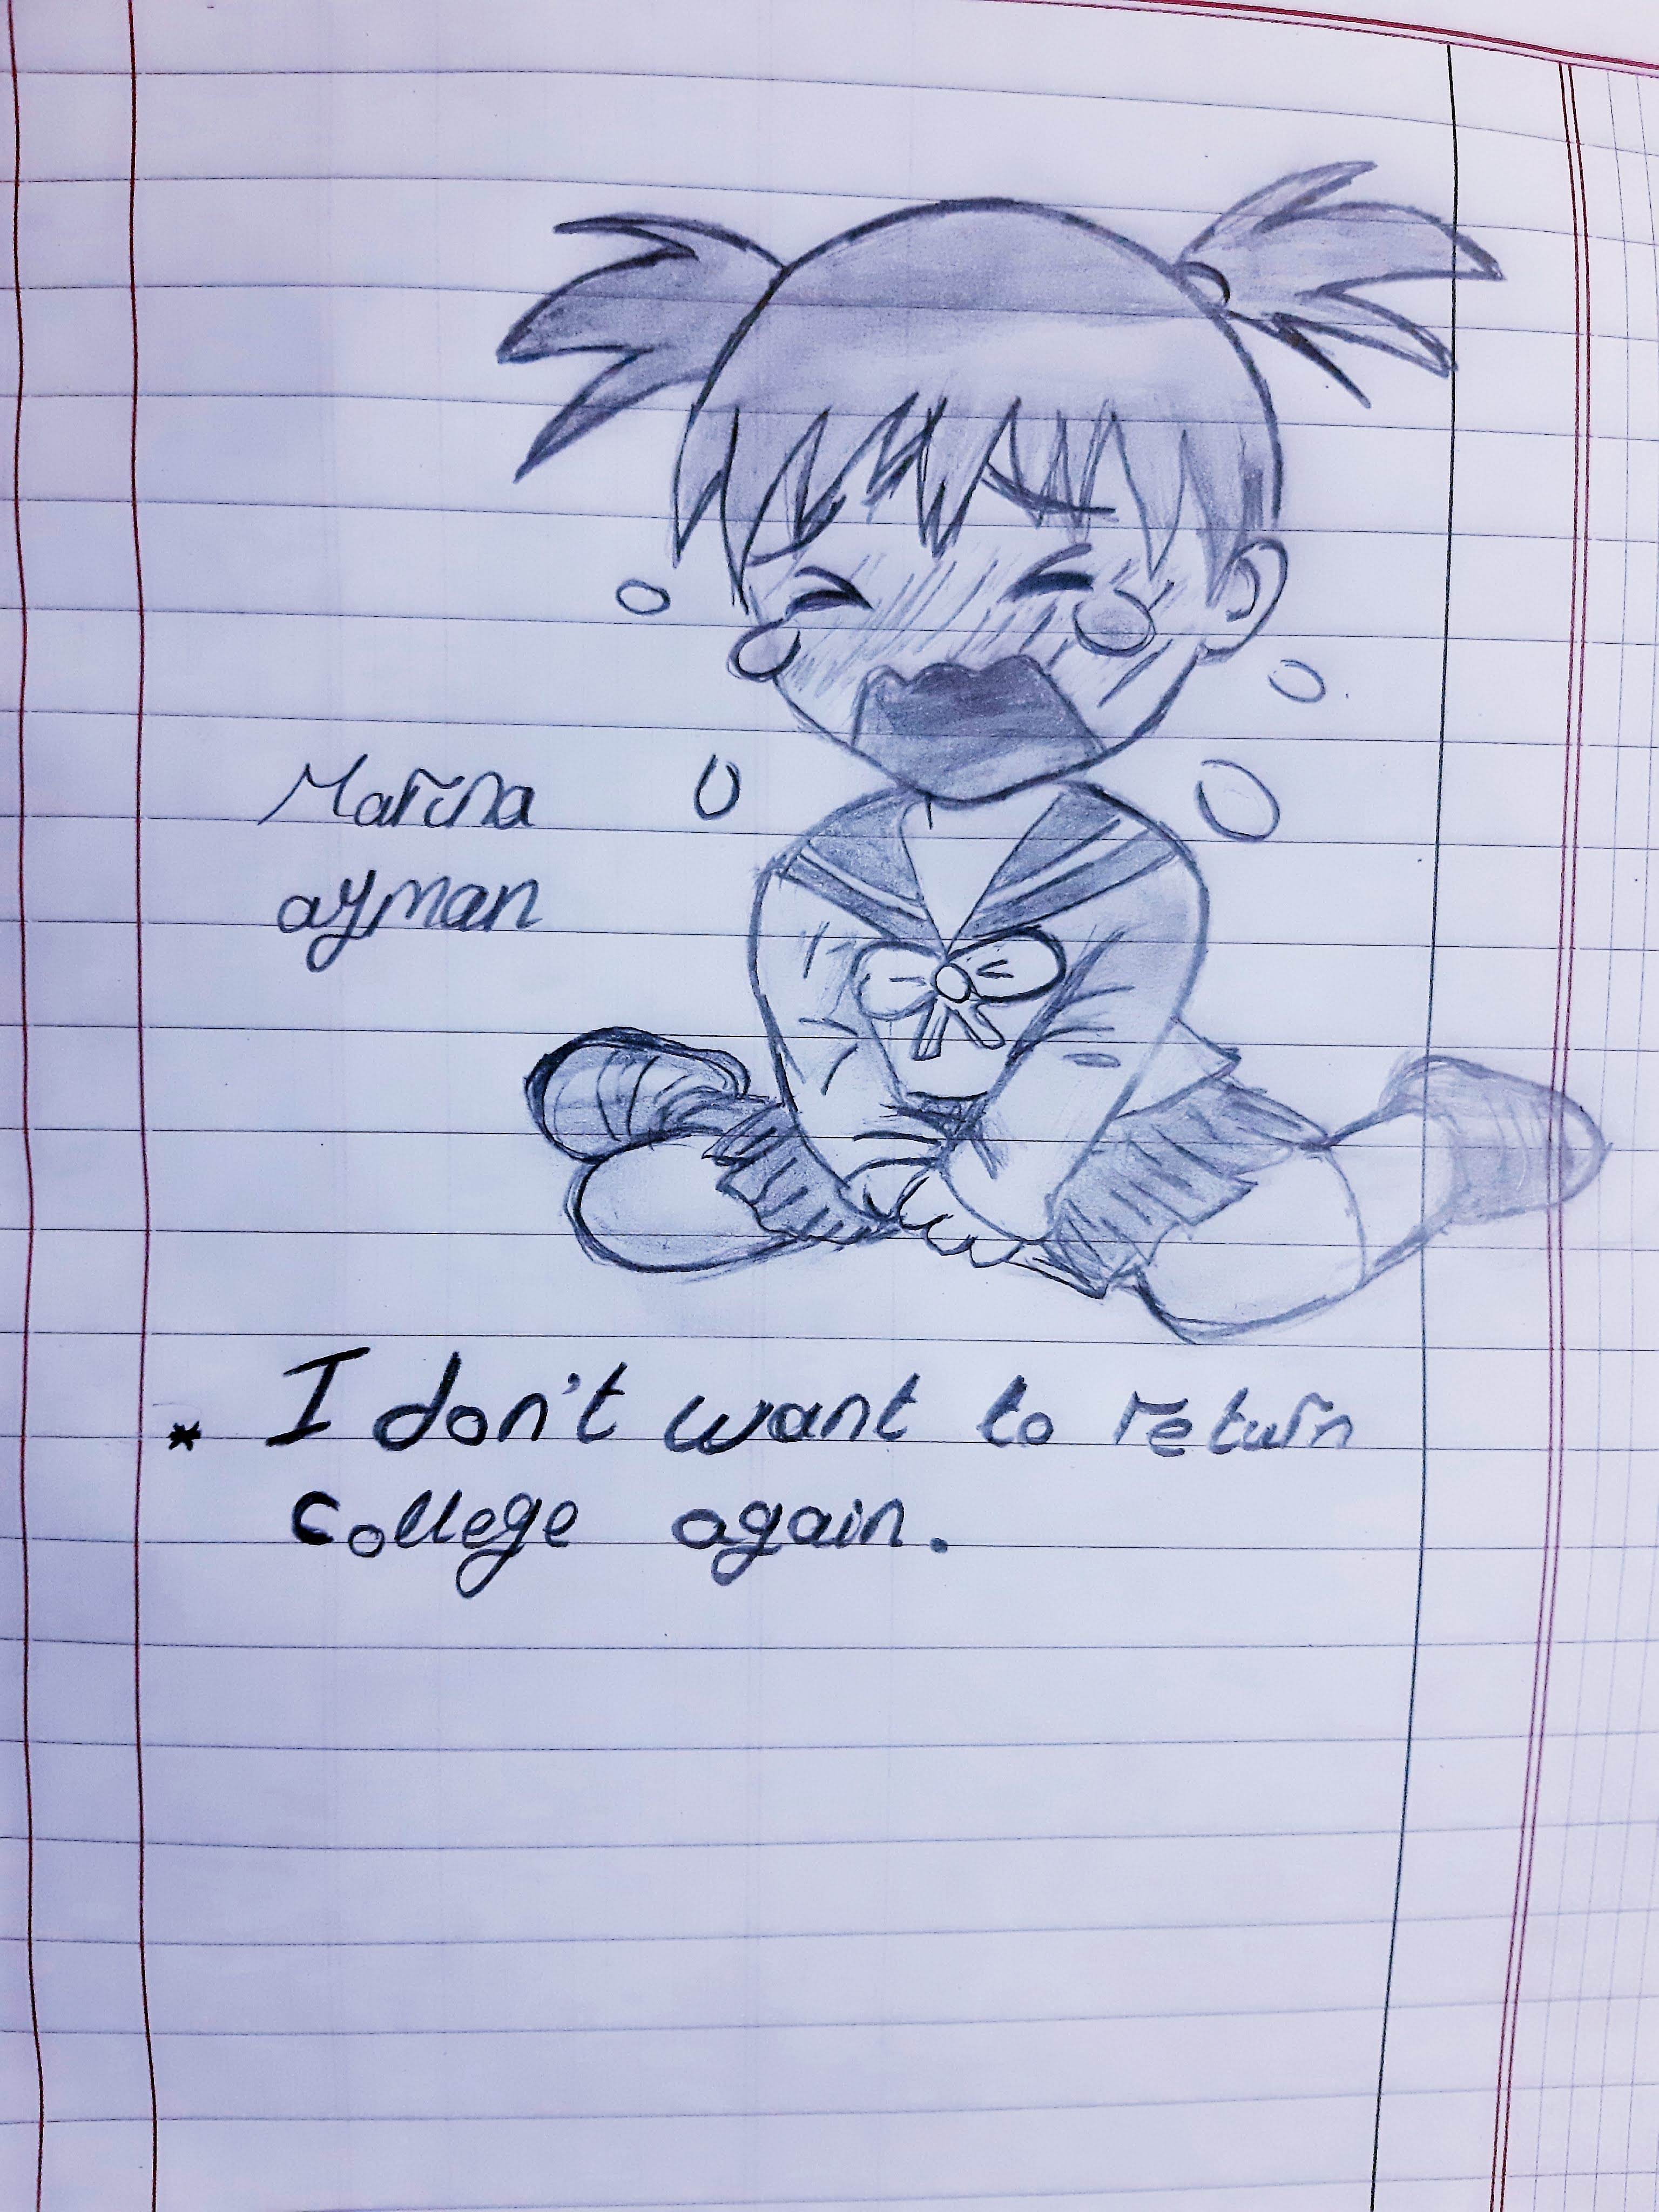 Marina
ayman
* I don't want to return
college again.